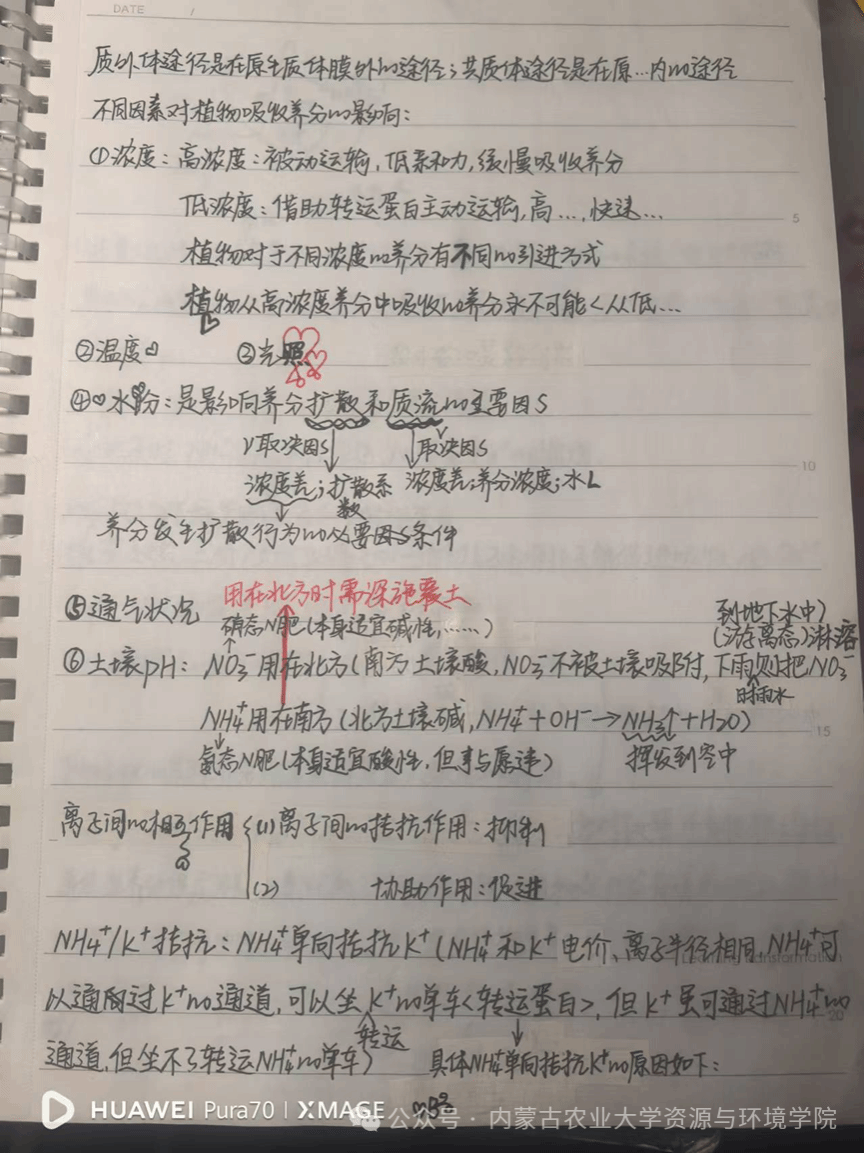 DATE /
质外体途径是在原生质体膜外的途径；共质体途径是在原…内的途径
不同因素对植物吸收养分的影响：
①浓度：高浓度：被动运输，低亲和力，缓慢吸收养分
低浓度：借助转运蛋白主动运输，高…，快速…
植物对于不同浓度的养分有不同的引进方式
植物从高浓度养分中吸收的养分永不可能<从低…
5
②温度 ③光照
④水分：是影响养分扩散和质流的主要因S
取决因S 取决因S
浓度差；扩散系数 浓度差；养分浓度；水L
10
养分发生扩散行为的必要因S条件
用在北方时需深施覆土
⑤通气状况
硝态N肥(本身适宜碱性，……)
到地下水中)
(游离态)淋溶
⑥土壤pH：NO3⁻用在北方(南方土壤酸，NO3⁻不被土壤吸附，下雨则把NO3⁻
时雨水
NH4⁺用在南方(北方土壤碱，NH4⁺+OH⁻→NH3↑+H2O)
15
氨态N肥(本身适宜酸性，但事与愿违) 挥发到空中
离子间的相互作用 (1)离子间的拮抗作用：抑制
(2) 协助作用：促进
NH4⁺/K⁺拮抗：NH4⁺单向拮抗K⁺(NH4⁺和K⁺电价、离子半径相同，NH4⁺可
以通过K⁺的通道，可以坐K⁺的单车<转运蛋白>，但K⁺虽可通过NH4⁺的
20
转运
通道，但坐不了转运NH4⁺的单车) 具体NH4⁺单向拮抗K⁺的原因如下：
HUAWEI Pura70 | XMAGE
公众号 · 内蒙古农业大学资源与环境学院